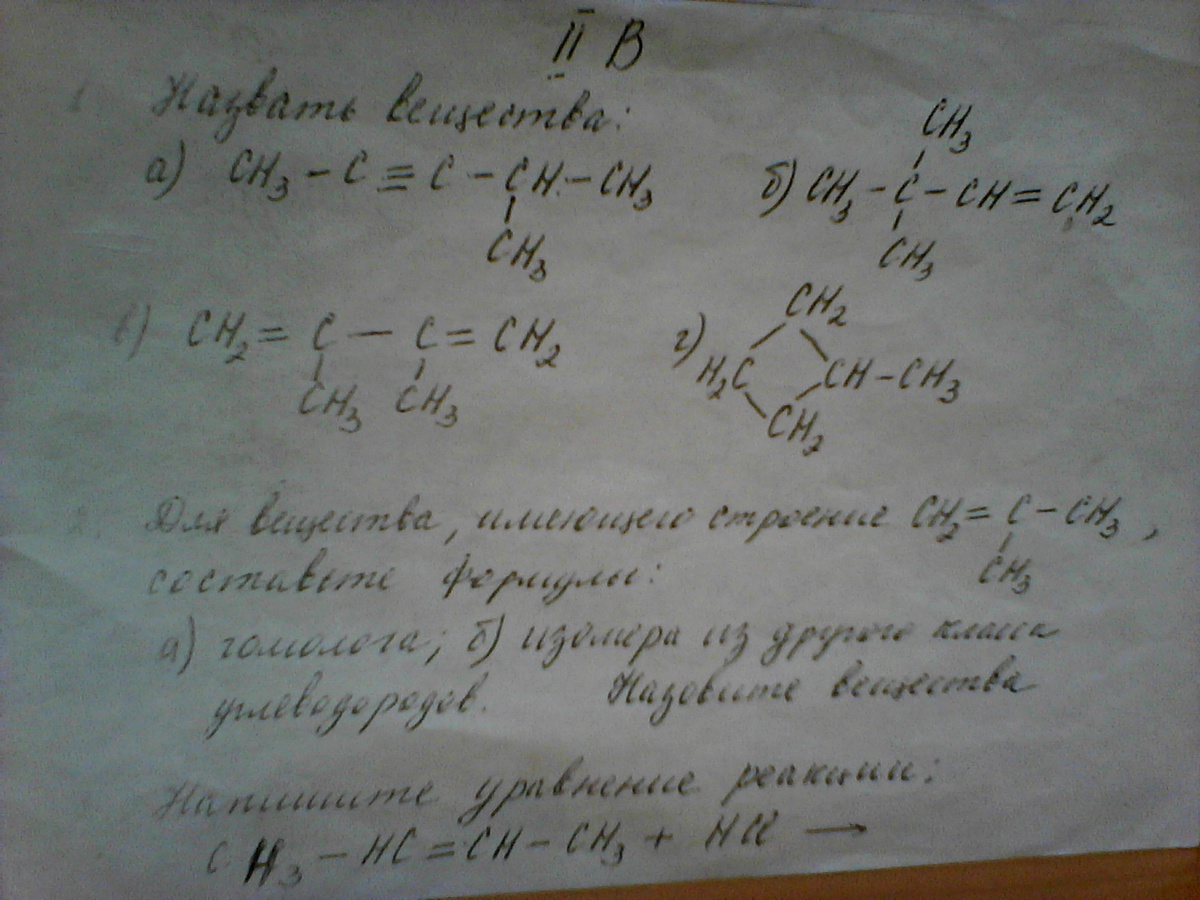 II В
1. Назвать вещества:
CH3
а) CH3 - C ≡ C - CH - CH3 б) CH3 - C - CH = CH2
CH3 CH3
в) CH2 = C — C = CH2 г) CH2
H2C CH - CH3
CH3 CH3 CH2
2. Для вещества, имеющего строение CH2 = C - CH3,
CH3
составьте формулы:
а) гомолога; б) изомера из другого класса
углеводородов. Назовите вещества
Напишите уравнение реакции:
CH3 - HC = CH - CH3 + HCl →